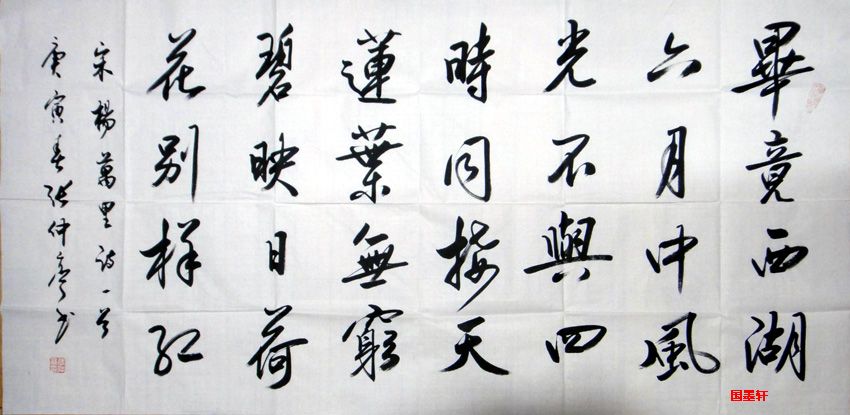 畢竟西湖
六月中風
光不與四
時同接天
蓮葉無窮
碧映日荷
花別樣紅
宋楊萬里詩一首
庚寅春張仲亭书
国墨轩